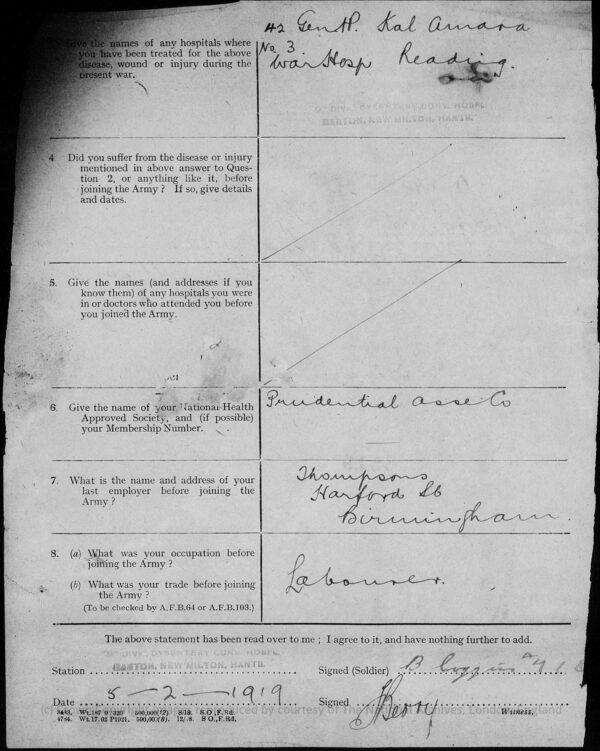 Give the names of any hospitals where
you have been treated for the above
disease, wound or injury during the
present war.
42 Gen H. Kal Amara
No 3
War Hosp Reading.
DYSENTERY CONV. HOSPL.
BARTON, NEW MILTON, HANTS.
4 Did you suffer from the disease or injury
mentioned in above answer to Ques-
tion 2, or anything like it, before
joining the Army ? If so, give details
and dates.
5. Give the names (and addresses if you
know them) of any hospitals you were
in or doctors who attended you before
you joined the Army.
6. Give the name of your National Health
Approved Society, and (if possible)
your Membership Number.
Prudential Asse Co
7. What is the name and address of your
last employer before joining the
Army ?
Thompsons
Harford St
Birmingham.
8. (a) What was your occupation before
joining the Army ?
(b) What was your trade before joining
the Army ?
(To be checked by A.F.B.64 or A.F.B.103.)
Labourer.
The above statement has been read over to me ; I agree to it, and have nothing further to add.
DYSENTERY CONV. HOSPL.
Station BARTON, NEW MILTON, HANTS.
Signed (Soldier) B Coggins
Date 5-2-1919
Signed Berry
Witness.
duced by courtesy of The National Archives, London, England